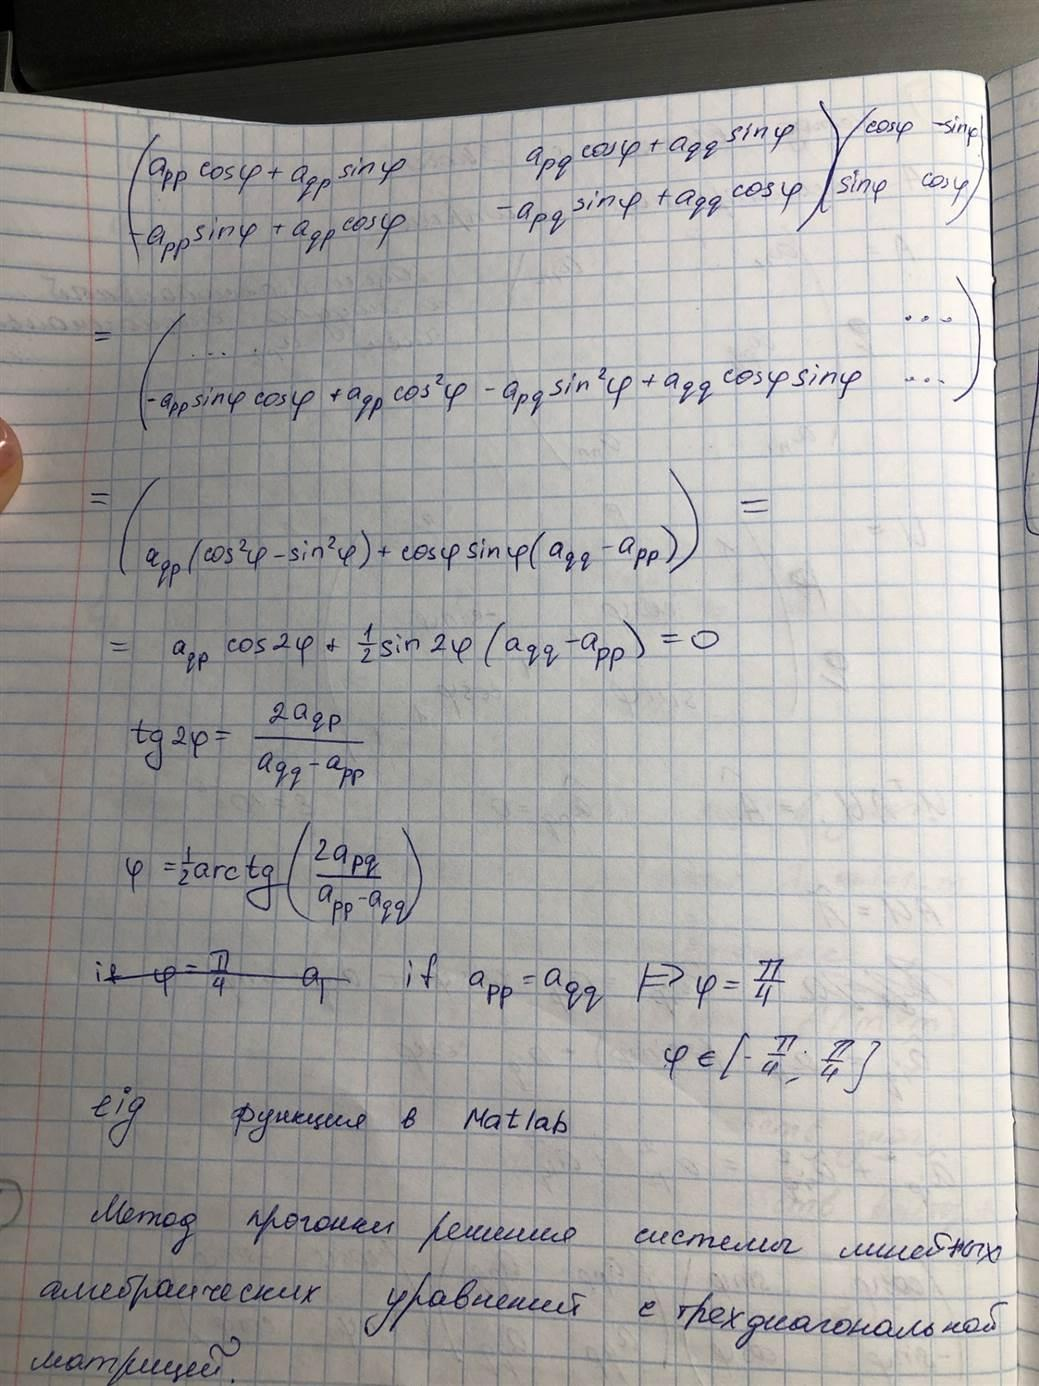 ( a_pp cosφ + a_qp sinφ   a_pq cosφ + a_qq sinφ ) ( cosφ  -sinφ )
( -a_pp sinφ + a_qp cosφ   -a_pq sinφ + a_qq cosφ ) ( sinφ  cosφ )
= ( ...   ... )
( -a_pp sinφ cosφ + a_qp cos²φ - a_pq sin²φ + a_qq cosφ sinφ   ... )
= ( a_qp (cos²φ - sin²φ) + cosφ sinφ (a_qq - a_pp) ) =
= a_qp cos2φ + 1/2 sin2φ (a_qq - a_pp) = 0
tg 2φ = 2a_qp / (a_qq - a_pp)
φ = 1/2 arctg ( 2a_pq / (a_pp - a_qq) )
if φ = π/4 a if a_pp = a_qq ⇒ φ = π/4
φ ∈ [-π/4; π/4]
eig функция в Matlab
Метод прогонки решения системы линейных
алгебраических уравнений с трехдиагональной
матрицей.